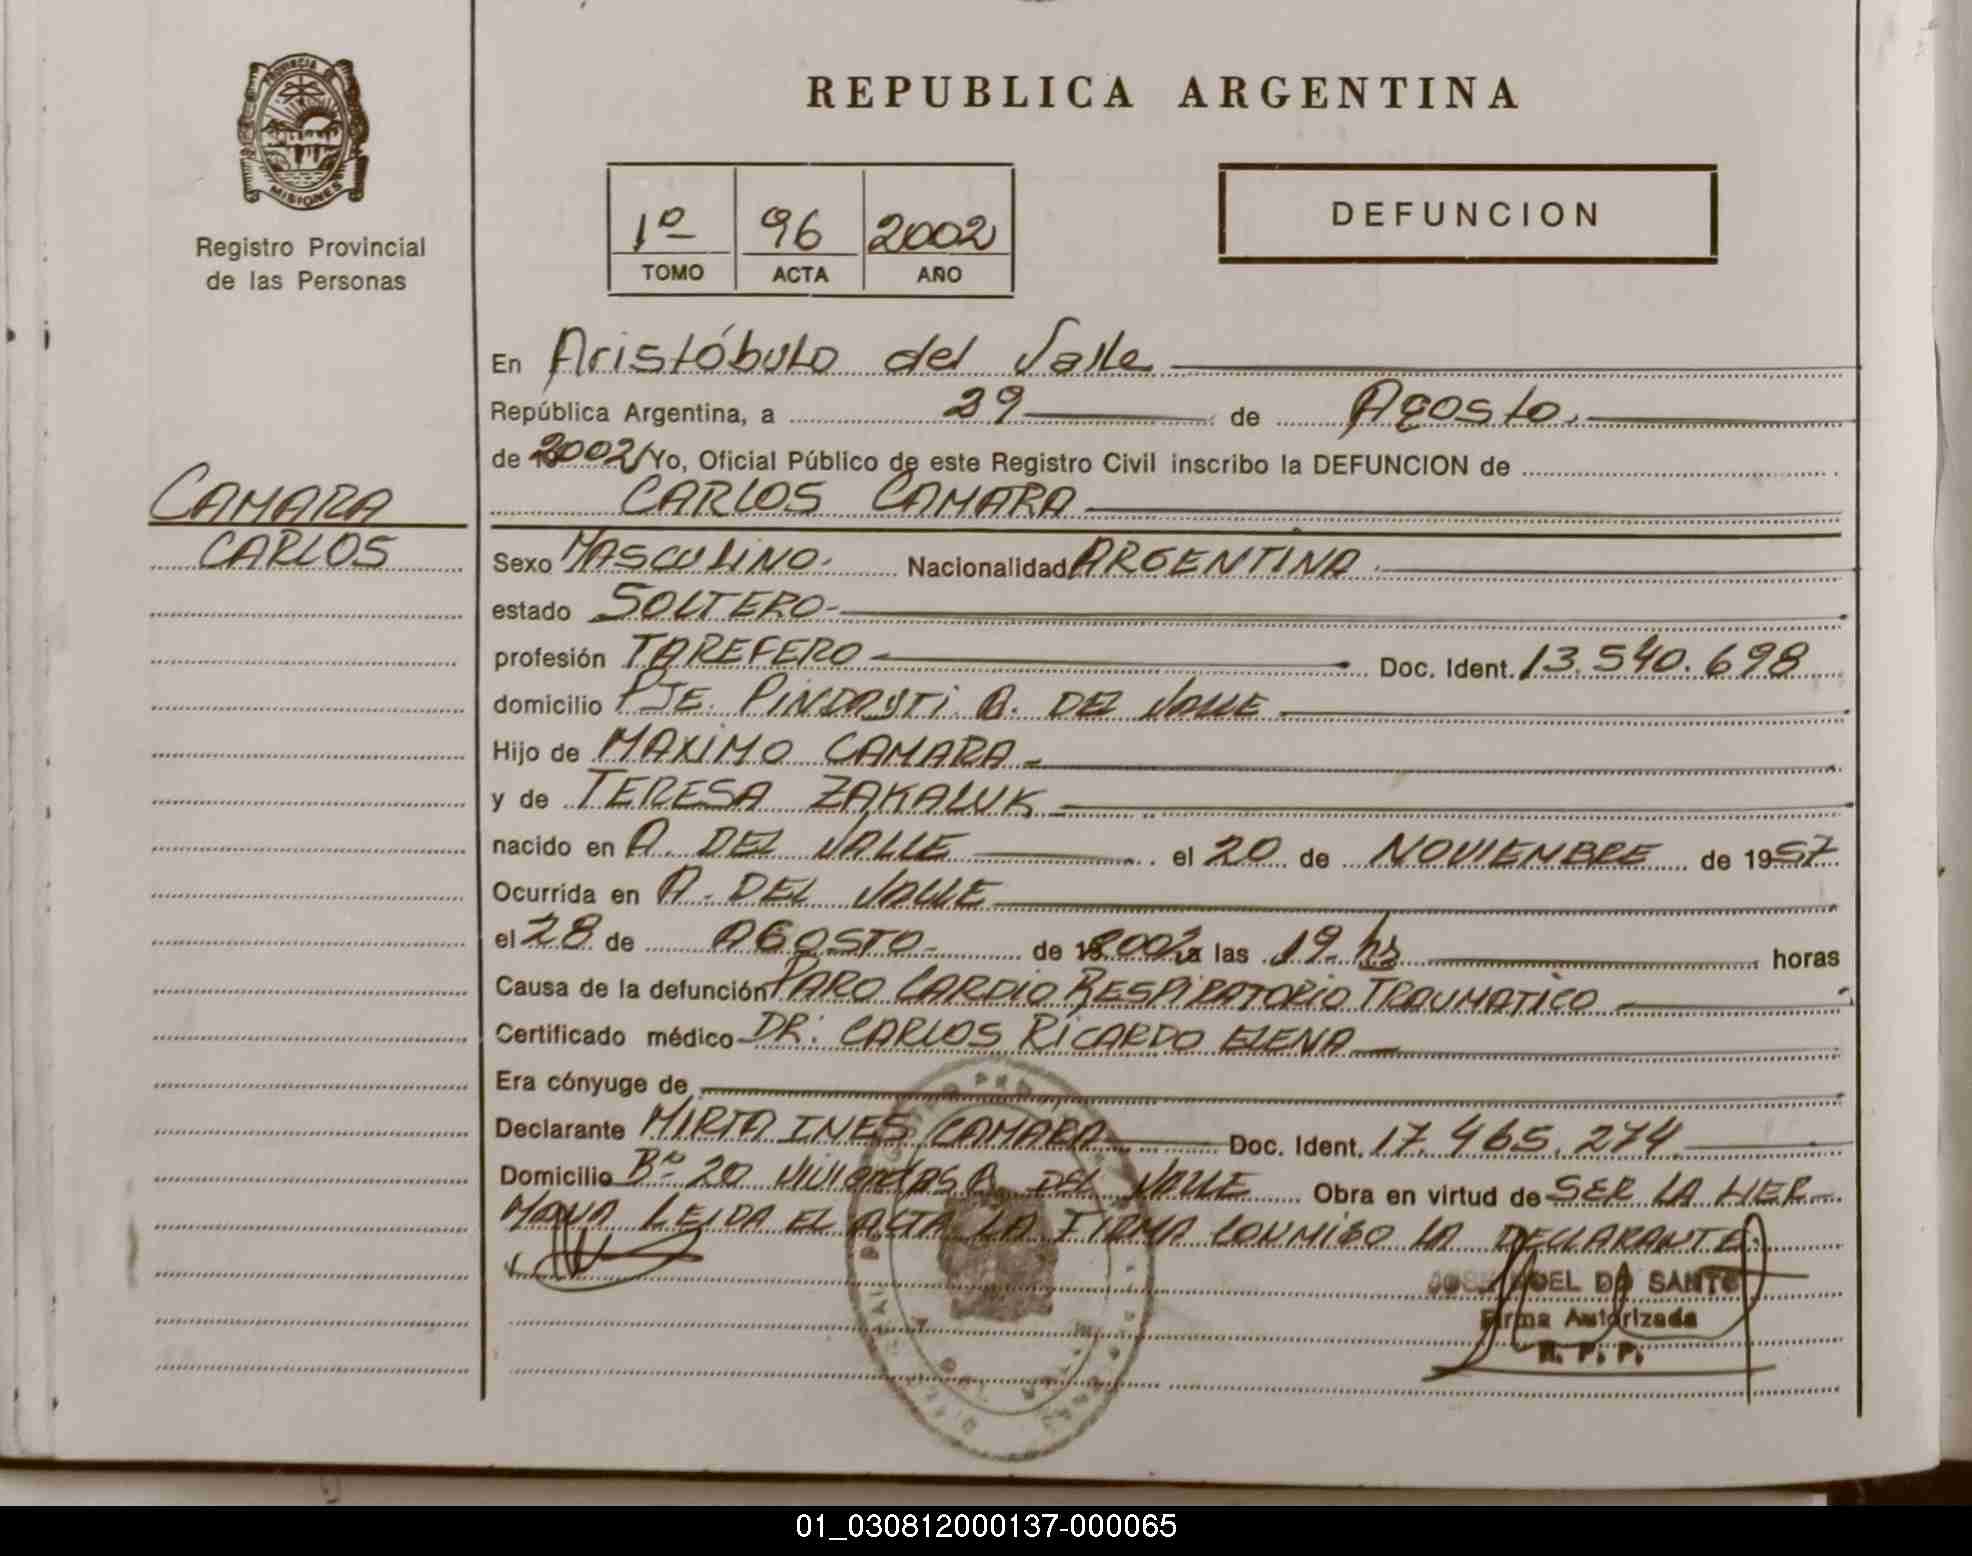 PROVINCIA DE
MISIONES
Registro Provincial
de las Personas
REPUBLICA ARGENTINA
1º 96 2002
TOMO ACTA AÑO
DEFUNCION
En Aristóbulo del Valle
República Argentina, a 29 de Agosto.
de 2002 Yo, Oficial Público de este Registro Civil inscribo la DEFUNCION de
CARLOS CAMARA
CAMARA
CARLOS
Sexo MASCULINO. Nacionalidad ARGENTINA.
estado SOLTERO-
profesión TAREFERO Doc. Ident. 13.540.698
domicilio PJE. PINDAYTI A. DEL VALLE
Hijo de MAXIMO CAMARA
y de TERESA ZAKALUK
nacido en A. DEL VALLE el 20 de NOVIEMBRE de 1957
Ocurrida en A. DEL VALLE
el 28 de AGOSTO de 2002 a las 19 hs horas
Causa de la defunción PARO CARDIO RESPIRATORIO TRAUMATICO
Certificado médico DR: CARLOS RICARDO ELENA
Era cónyuge de
Declarante MIRTA INES CAMARA Doc. Ident. 17.465.274
Domicilio Bº 20 Viviendas A. DEL VALLE Obra en virtud de SER LA HER
MANA LEIDA EL ACTA LA FIRMA CONMIGO LA DECLARANTE.
JOSE NOEL DO SANTO
Firma Autorizada
R. P. P.
01_030812000137-000065